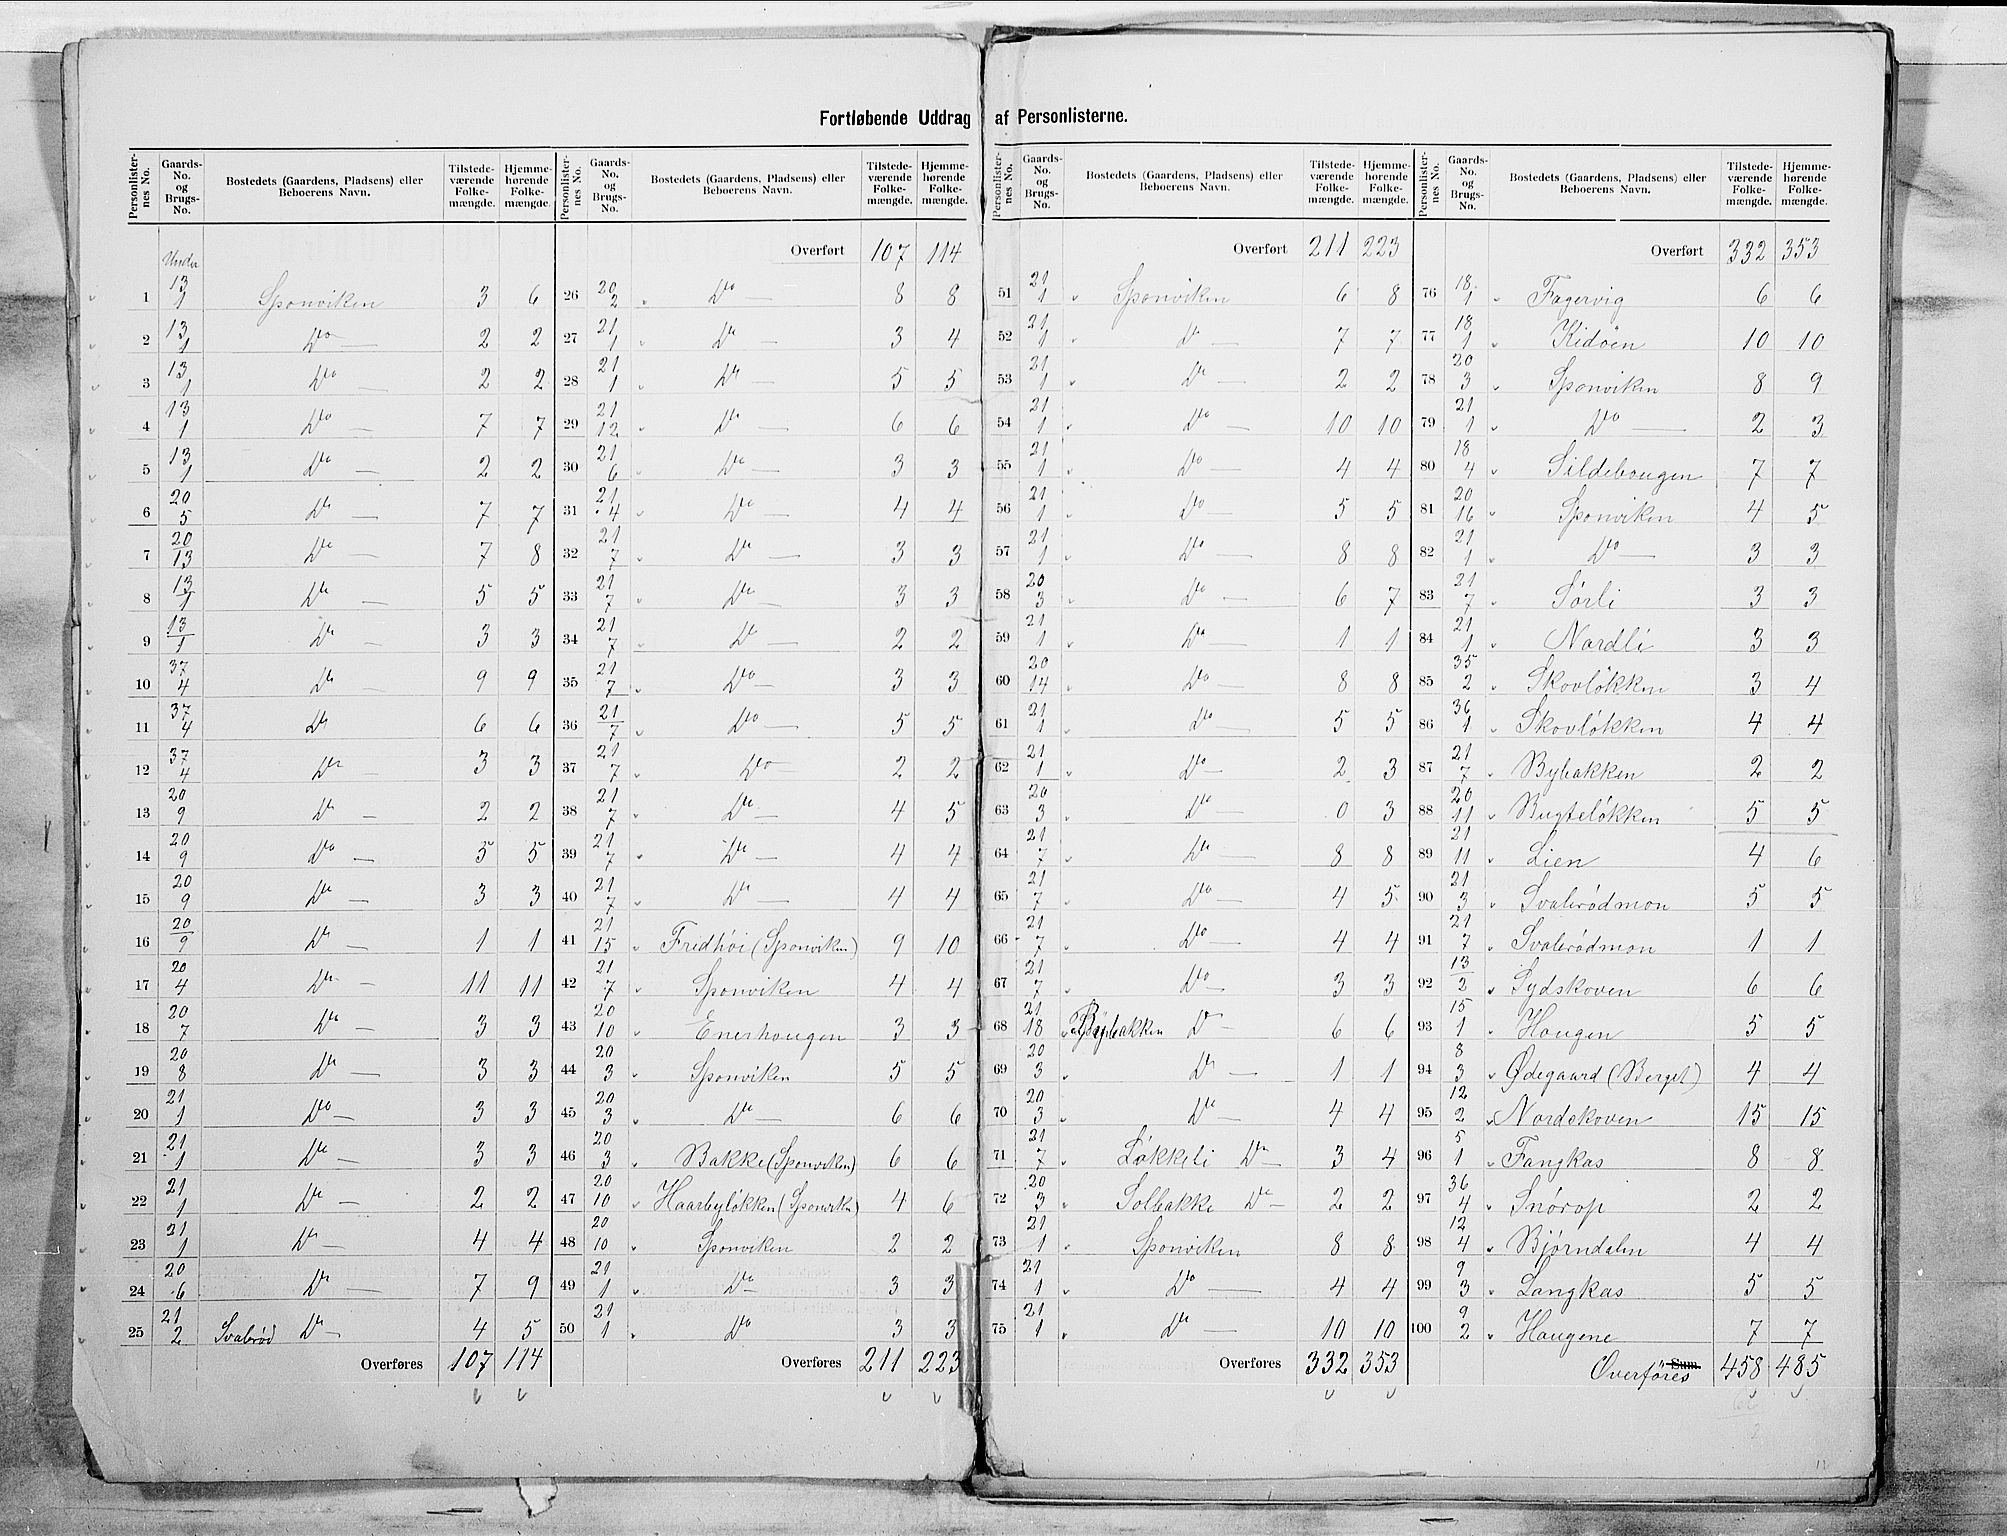 Fortløbende Uddrag af Personlisterne.
Personlister-nes No. | Gaards-No. og Brugs-No. | Bostedets (Gaardens, Pladsens) eller Beboerens Navn. | Tilstede-værende Folke-mængde. | Hjemme-hørende Folke-mængde.
Under
1 | 13/1 | Sponviken | 3 | 6
2 | 13/1 | Do — | 2 | 2
3 | 13/1 | Do — | 2 | 2
4 | 13/1 | Do — | 7 | 7
5 | 13/1 | Do — | 2 | 2
6 | 20/5 | Do — | 7 | 7
7 | 20/13 | Do — | 7 | 8
8 | 13/1 | Do — | 5 | 5
9 | 13/1 | Do — | 3 | 3
10 | 37/4 | Do — | 9 | 9
11 | 37/4 | Do | 6 | 6
12 | 37/4 | Do — | 3 | 3
13 | 20/9 | Do — | 2 | 2
14 | 20/9 | Do — | 5 | 5
15 | 20/9 | Do — | 3 | 3
16 | 20/9 | Do — | 1 | 1
17 | 20/4 | Do — | 11 | 11
18 | 20/7 | Do — | 3 | 3
19 | 20/8 | Do — | 3 | 3
20 | 21/1 | Do — | 3 | 3
21 | 21/1 | Do — | 3 | 3
22 | 21/1 | Do — | 2 | 2
23 | 21/1 | Do — | 4 | 4
24 | 20/6 | Do — | 7 | 9
25 | 21/2 | Svalerød Do — | 4 | 5
Overføres 107 114
Personlister-nes No. | Gaards-No. og Brugs-No. | Bostedets (Gaardens, Pladsens) eller Beboerens Navn. | Tilstede-værende Folke-mængde. | Hjemme-hørende Folke-mængde.
Overført 107 114
26 | 20/2 | Do — | 8 | 8
27 | 21/1 | Do — | 3 | 4
28 | 21/1 | Do — | 5 | 5
29 | 21/12 | Do — | 6 | 6
30 | 21/6 | Do — | 3 | 3
31 | 21/4 | Do — | 4 | 4
32 | 21/7 | Do — | 3 | 3
33 | 21/7 | Do — | 3 | 3
34 | 21/7 | Do — | 2 | 2
35 | 21/7 | Do — | 3 | 3
36 | 21/7 | Do — | 5 | 5
37 | 21/7 | Do — | 2 | 2
38 | 21/7 | Do — | 4 | 5
39 | 21/7 | Do — | 4 | 4
40 | 21/7 | Do — | 4 | 4
41 | 21/15 | Fridhöi (Sponviken) | 9 | 10
42 | 21/7 | Sponviken | 4 | 4
43 | 20/10 | Enerhaugen | 3 | 3
44 | 20/3 | Sponviken | 5 | 5
45 | 20/3 | Do — | 6 | 6
46 | 20/3 | Bakke (Sponviken) | 6 | 6
47 | 20/10 | Haarbyløkken (Sponvik) | 4 | 6
48 | 20/10 | Sponviken | 2 | 2
49 | 21/1 | Do — | 3 | 3
50 | 21/1 | Do | 3 | 3
Overføres 211 223
Personlister-nes No. | Gaards-No. og Brugs-No. | Bostedets (Gaardens, Pladsens) eller Beboerens Navn. | Tilstede-værende Folke-mængde. | Hjemme-hørende Folke-mængde.
Overført 211 223
51 | 21/1 | Sponviken | 6 | 8
52 | 21/1 | Do — | 7 | 7
53 | 21/1 | Do — | 2 | 2
54 | 21/1 | Do — | 10 | 10
55 | 21/1 | Do — | 4 | 4
56 | 21/1 | Do — | 5 | 5
57 | 21/1 | Do — | 8 | 8
58 | 20/3 | Do — | 6 | 7
59 | 21/1 | Do — | 1 | 1
60 | 20/14 | Do — | 8 | 8
61 | 21/1 | Do — | 5 | 5
62 | 21/1 | Do — | 2 | 3
63 | 20/3 | Do — | 0 | 3
64 | 21/7 | Do — | 8 | 8
65 | 21/7 | Do — | 4 | 5
66 | 21/7 | Do — | 4 | 4
67 | 21/7 | Do — | 3 | 3
68 | 21/18 | Bybakken Do — | 6 | 6
69 | 20/3 | Do — | 1 | 1
70 | 20/3 | Do — | 4 | 4
71 | 21/7 | Løkkeli Do — | 3 | 4
72 | 20/3 | Solbakke Do — | 2 | 2
73 | 21/1 | Sponviken | 8 | 8
74 | 21/1 | Do — | 4 | 4
75 | 21/1 | Do — | 10 | 10
Overføres 332 353
Personlister-nes No. | Gaards-No. og Brugs-No. | Bostedets (Gaardens, Pladsens) eller Beboerens Navn. | Tilstede-værende Folke-mængde. | Hjemme-hørende Folke-mængde.
Overført 332 353
76 | 18/1 | Fagervig | 6 | 6
77 | 18/1 | Kidöen | 10 | 10
78 | 20/3 | Sponviken | 8 | 9
79 | 21/1 | Do — | 2 | 3
80 | 18/4 | Sildebougen | 7 | 7
81 | 20/16 | Sponviken | 4 | 5
82 | 21/1 | Do — | 3 | 3
83 | 21/7 | Sørli | 3 | 3
84 | 21/1 | Nordli | 3 | 3
85 | 35/2 | Skovløkken | 3 | 4
86 | 36/1 | Skovløkken | 4 | 4
87 | 21/7 | Bybakken | 2 | 2
88 | 20/11 | Bugteløkken | 5 | 5
89 | 21/11 | Lien | 4 | 6
90 | 21/3 | Svalerødmon | 5 | 5
91 | 21/7 | Svalerødmon | 1 | 1
92 | 13/2 | Sydskoven | 6 | 6
93 | 15/1 | Haugen | 5 | 5
94 | 8/3 | Ødegaard (Berget) | 4 | 4
95 | 12/2 | Nordskoven | 15 | 15
96 | 5/1 | Fangkas | 8 | 8
97 | 36/4 | Snörop | 2 | 2
98 | 12/4 | Bjørndalen | 4 | 4
99 | 9/3 | Langkas | 5 | 5
100 | 9/2 | Haugene | 7 | 7
Sum. Overföres 458 485